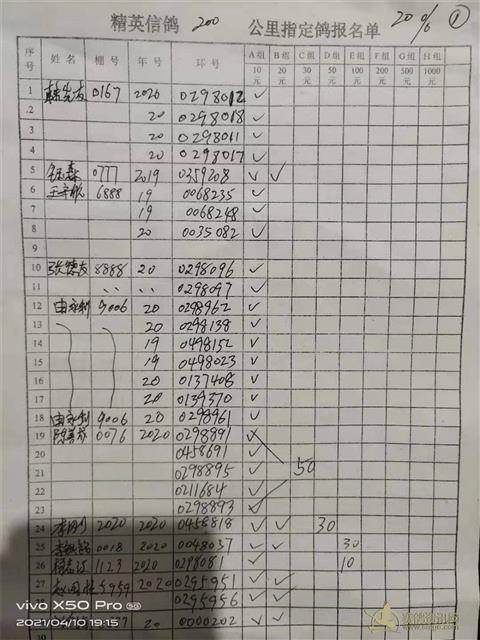 精英信鸽 200 公里指定鸽报名单 20% ①
序号 姓名 棚号 年号 环号 A组 B组 C组 D组 E组 F组 G组 H组
10元 20元 30元 50元 100元 200元 500元 1000元
1 0167 2020 0298012 ✓
2 20 0298018 ✓
3 20 0298011 ✓
4 20 0298017 ✓
5 0777 2019 0359208 ✓ ✓
6 6888 19 0068235 ✓
7 19 0068248 ✓
8 20 0035082 ✓
9
10 张德友 8888 20 0298096 ✓
11 0298097 ✓
12 由永利 9006 20 0298962 ✓
13 20 0298138 ✓
14 19 0498152 ✓
15 19 0498023 ✓
16 20 0137408 ✓
17 20 0139370 ✓
18 由永利 9006 20 0298961 ✓
19 0076 2020 0298891 ✓
20 0458691 ✓
21 0298895 ✓ 50
22 0211684 ✓
23 0298893 ✓
24 2020 2020 0458818 ✓ ✓ 30
25 0018 2020 0048037 ✓ ✓ 30
26 1123 2020 0298081 ✓ 10
27 5959 2020 0295951 ✓ ✓
28 0295956 ✓ ✓
20 0000202 ✓ ✓
30
vivo X50 Pro
2021/04/10 19:15